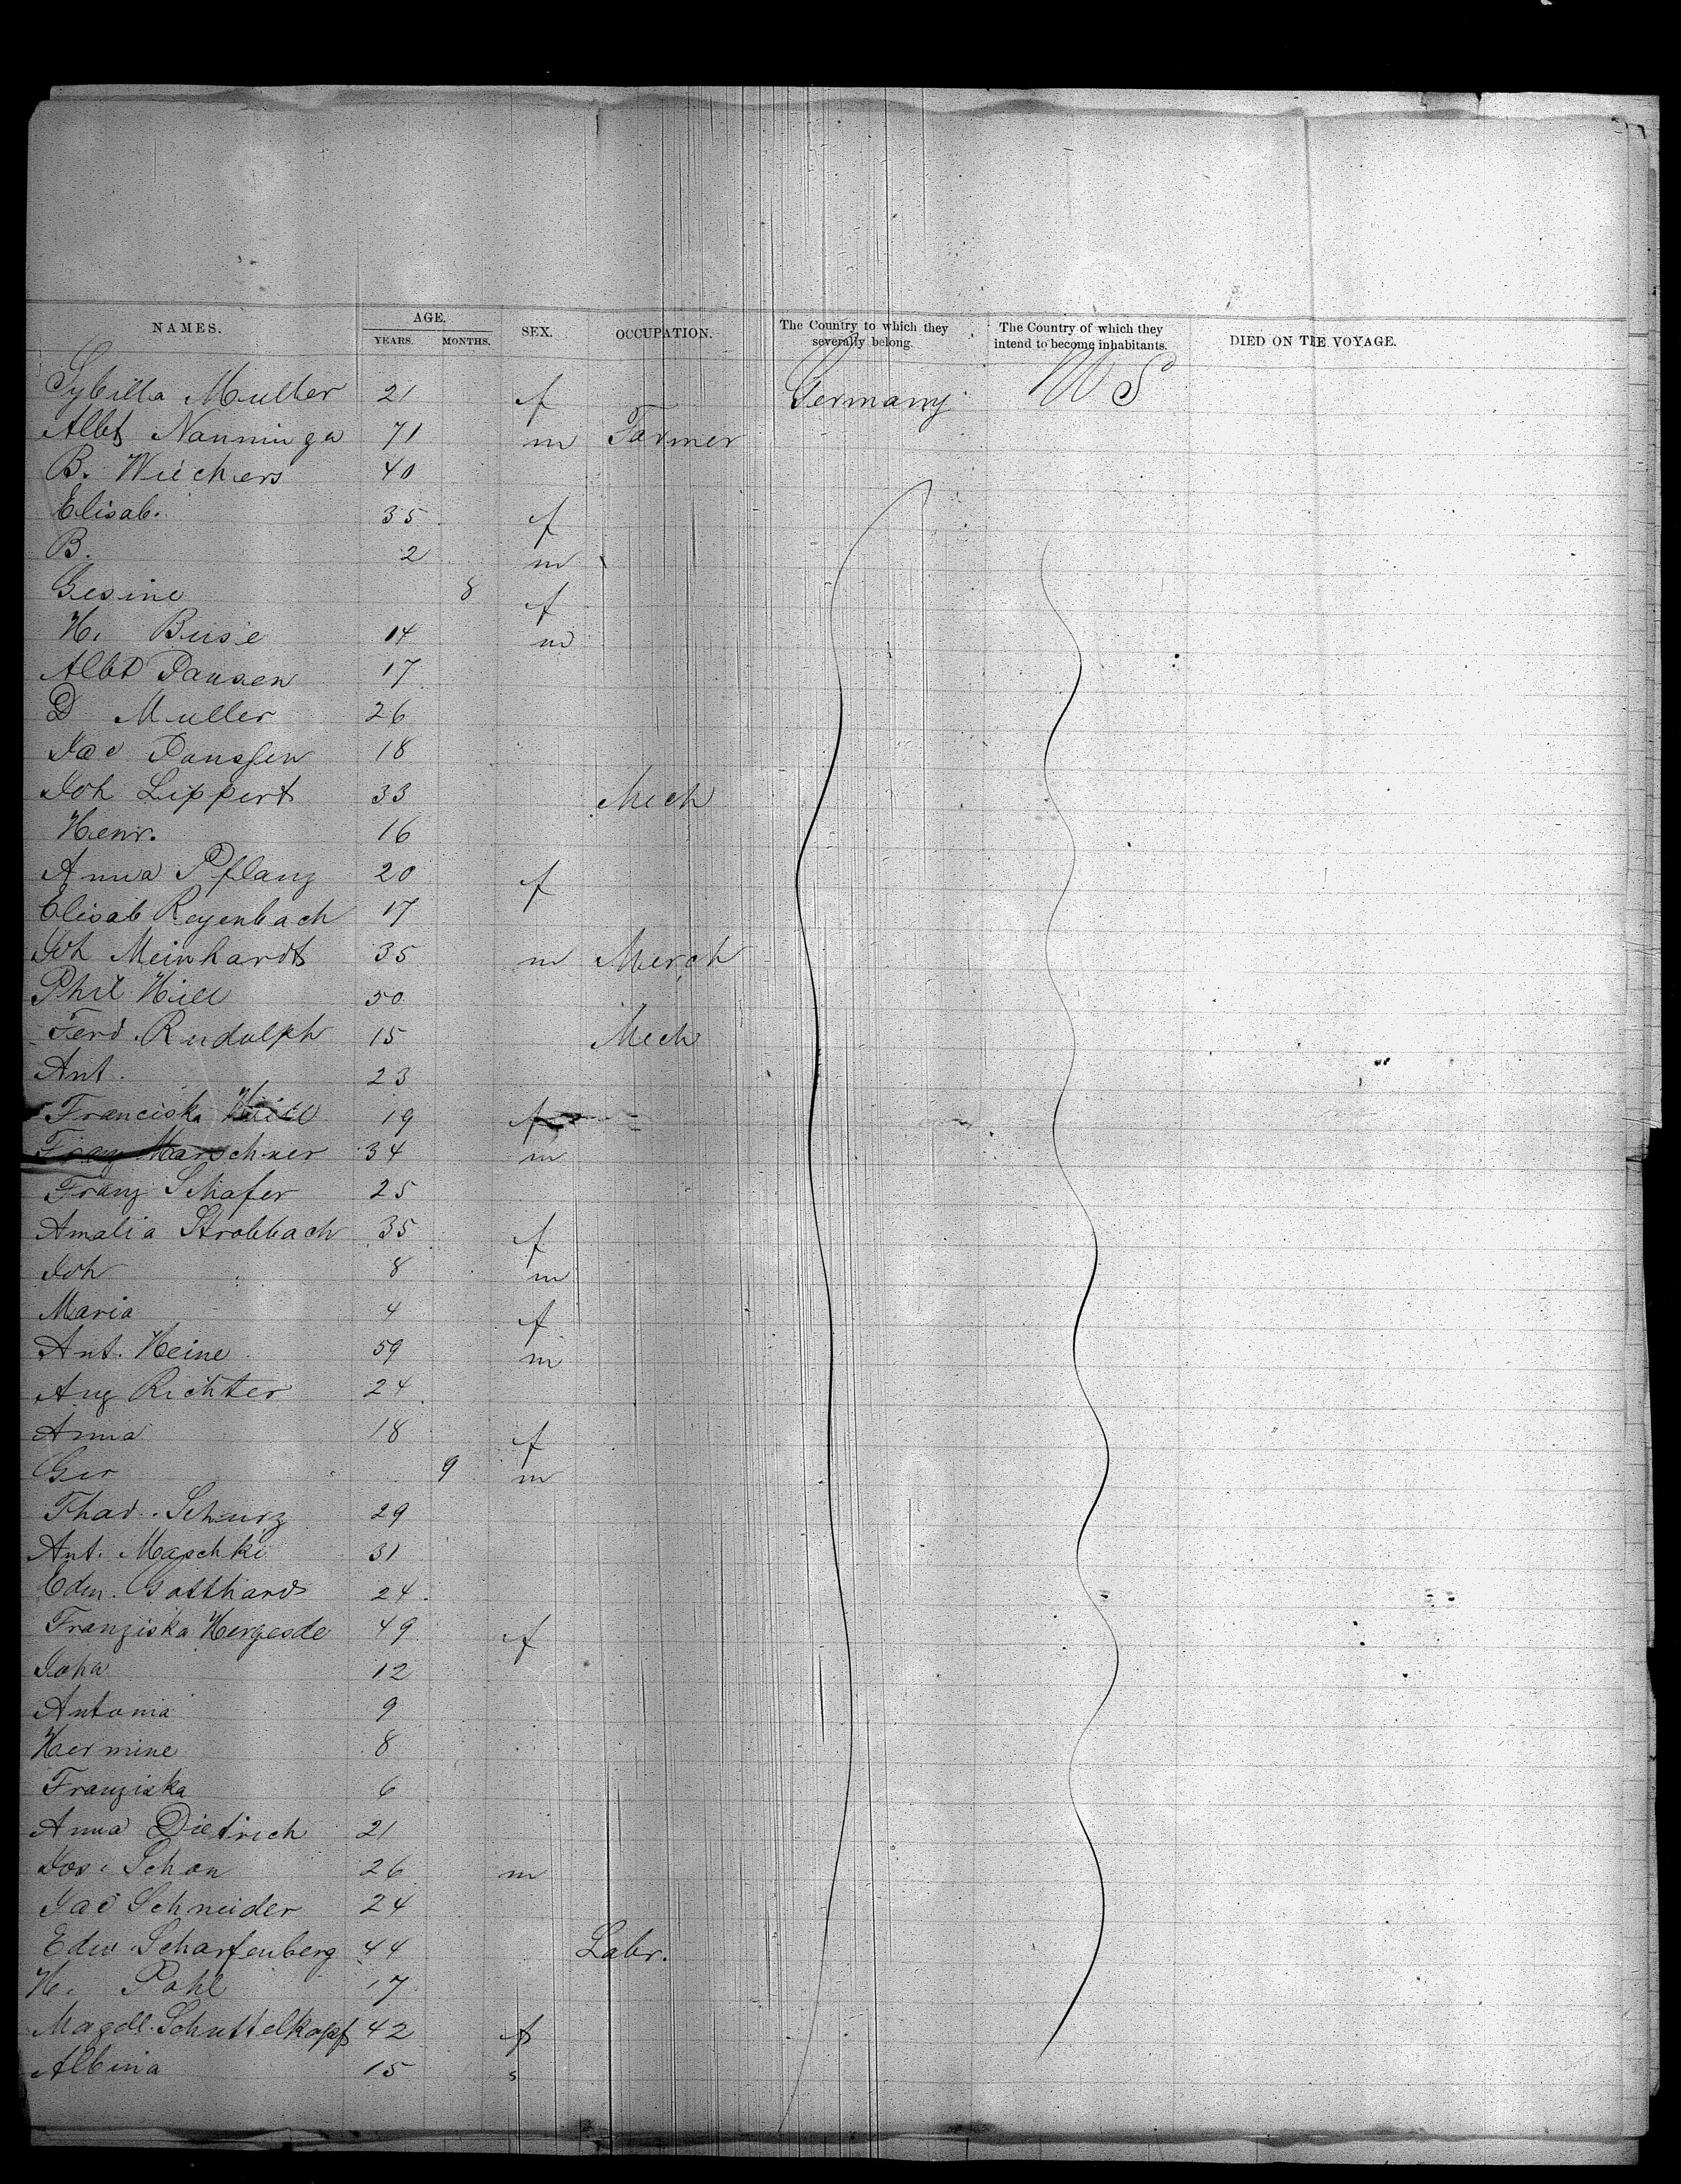 NAMES. AGE. YEARS. MONTHS. SEX. OCCUPATION. The Country to which they severally belong. The Country of which they intend to become inhabitants. DIED ON THE VOYAGE.
Sybilla Muller 21 f Germany U S
Albt Nanninga 71 m Farmer
B. Wiechers 40
Elisab. 35 f
B. 2 m
Gesine 8 f
H. Buse 14 m
Albt Pausen 17
D Muller 26
Jac 18
Joh Lippert 33 Mech
Henr. 16
Anna Pflanz 20 f
Elisab Reyenbach 17
Joh Meinhardt 35 m Merch
Phil Hill 50
Ferd. Rudolph 15 Mech
Ant. 23
Franciska 19 f
Franz Marschner 34 m
Franz Schafer 25
Amalia Strobbach 35 f
Joh 8 m
Maria 4 f
Ant. Heine 59 m
Aug Richter 24
Anna 18 f
9 m
Thad. Schurz 29
Ant. Maschke 31
Edw. Gotthard 24
Franziska Hergesde 49 f
Joha 12
Antonia 9
Hermine 8
Franziska 6
Anna Dietrich 21
Jos. Schon 26 m
Jac Schneider 24
Edw. Scharfenberg 44 Labr.
H. Pohl 17
Magdl. Schuttelkopf 42 f
Albina 15